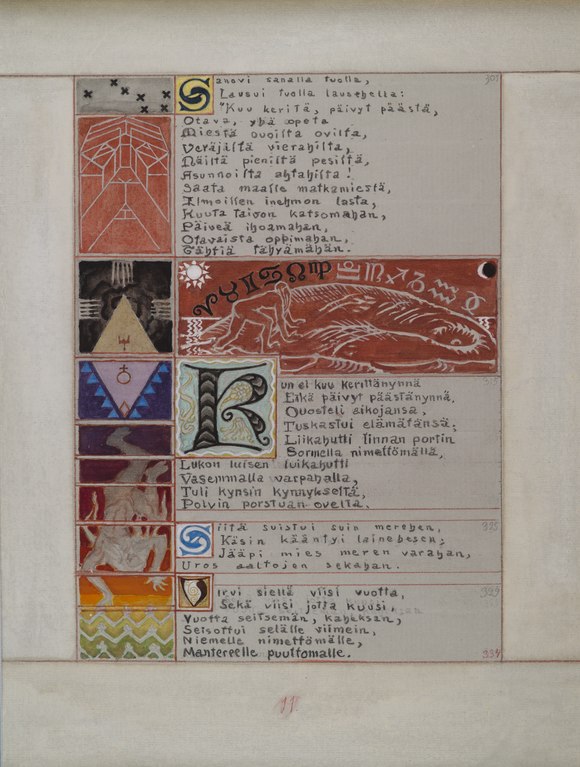 Sanovi sanalla tuolla, 301
Lausui tuolla lausehella:
"Kuu keritä, päivyt päästä,
Otava, yhä opeta
Miestä ouoilta ovilta,
Veräjiltä vierahilta,
Näiltä pieniltä pesiltä,
Asunnoilta ahtahilta!
Saata maalle matkamiestä,
Ilmoillen inehmon lasta,
Kuuta taivon katsomahan,
Päiveä ihoamahan,
Otavaista oppimahan,
Tähtiä tähyämähän.
Kun ei kuu kerittänynnä 315
Eikä päivyt päästänynnä,
Ouosteli aikojansa,
Tuskastui elämätänsä:
Liikahutti linnan portin
Sormella nimettömällä,
Lukon luisen luikahutti
Vasemmalla varpahalla,
Tuli kynsin kynnykseltä,
Polvin porstuan ovelta.
Siitä suistui suin merehen, 325
Käsin kääntyi lainehesen;
Jääpi mies meren varahan,
Uros aaltojen sekahan.
Virui siellä viisi vuotta, 329
Sekä viisi jotta kuusi,
Vuotta seitsemän, kaheksan,
Seisottui selälle viimein,
Niemelle nimettömälle,
Mantereelle puuttomalle. 334
11